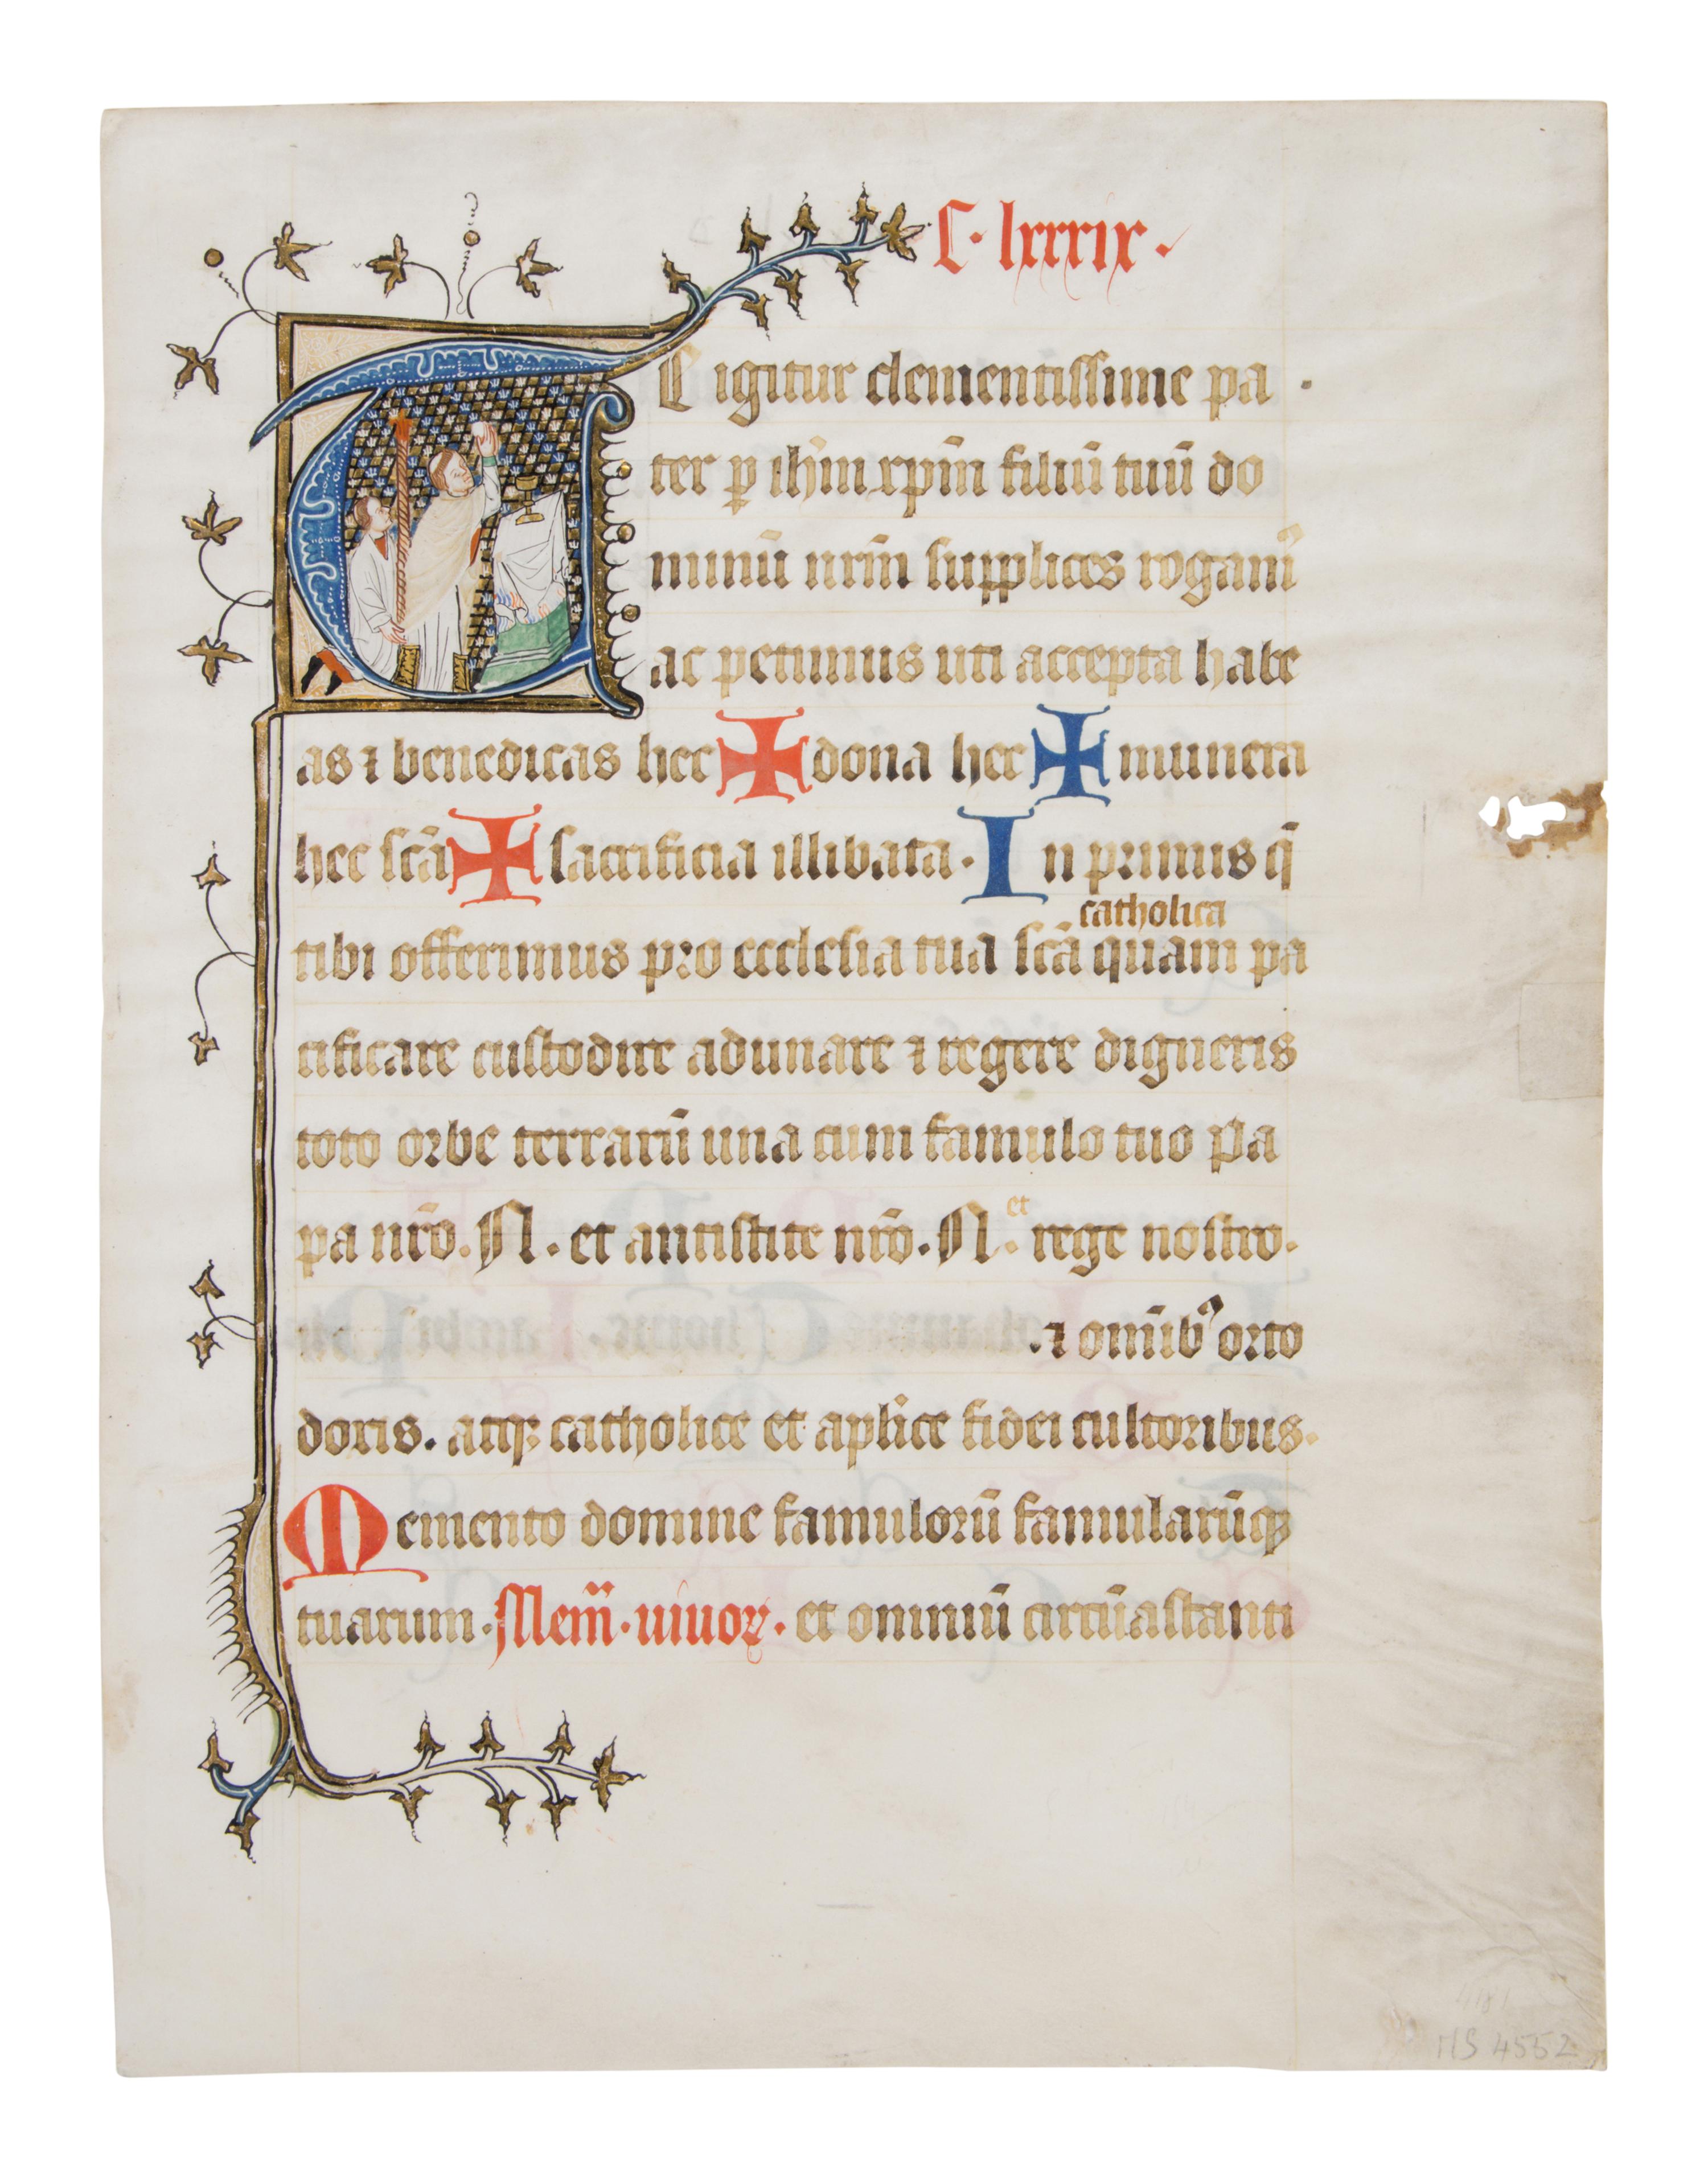 C · lxxxix ·
TE igitur clementissime pa
ter ꝑ ih̄m xp̄m filiū tuū do
minū nr̄m supplices rogamꝰ
ac petimus uti accepta habe
as ⁊ benedicas hec ✠ dona hec ✠ munera
hec sc̄a ✠ sacrificia illibata · In primis q̄
catholica
tibi offerimus pro ecclesia tua sc̄a quam pa
cificare custodire adunare ⁊ regere digneris
toto orbe terrarū una cum famulo tuo pa
pa nr̄o. N. et antistite nr̄o. N. et rege nostro.
. ⁊ om̄ibꝰ orto
doxis. atqꝫ catholice et aplīce fidei cultoribus.
Memento domine famulorū famularūqꝫ
tuarum · Mem̄ · uiuoꝝ · et omniū circūastanti
4181
MS 4552